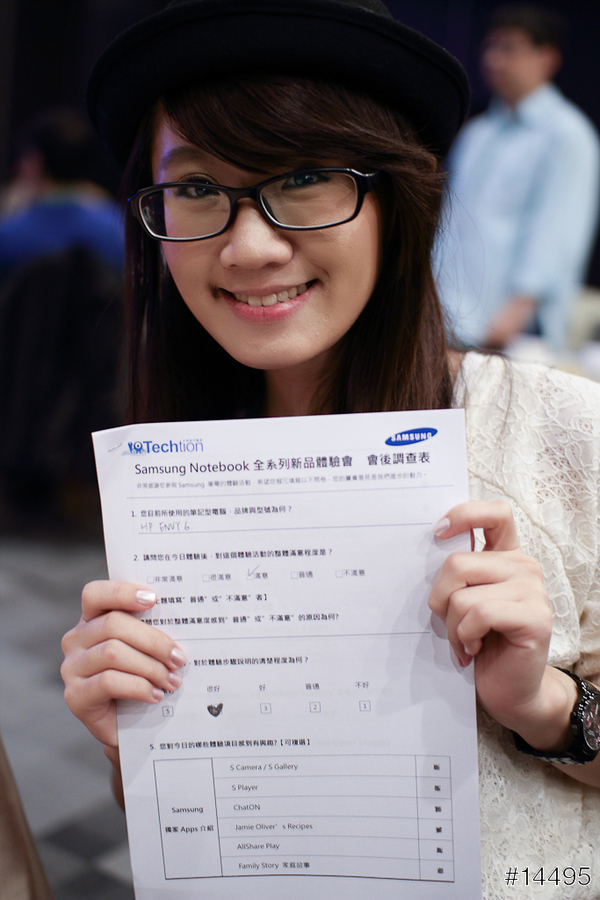 Techtion
SAMSUNG
Samsung Notebook 全系列新品體驗會 會後調查表
非常感謝您參與 Samsung 筆電的體驗活動，希望您撥冗填寫以下問卷，您的寶貴意見是我們進步的動力。
1. 您目前所使用的筆記型電腦，品牌與型號為何？
HP ENVY 6
2. 請問您在今日體驗後，對這個體驗活動的整體滿意程度是？
□非常滿意 □很滿意 ☑滿意 □普通 □不滿意
題填寫"普通"或"不滿意"者】
問您對於整體滿意度感到"普通"或"不滿意"的原因為何？
，對於體驗步驟說明的清楚程度為何？
很好 好 普通 不好
5 3 2 1
5. 您對今日的哪些體驗項目感到有興趣？【可複選】
Samsung
獨家 Apps 介紹
S Camera / S Gallery
S Player
ChatON
Jamie Oliver's Recipes
AllShare Play
Family Story 家庭故事
#14495